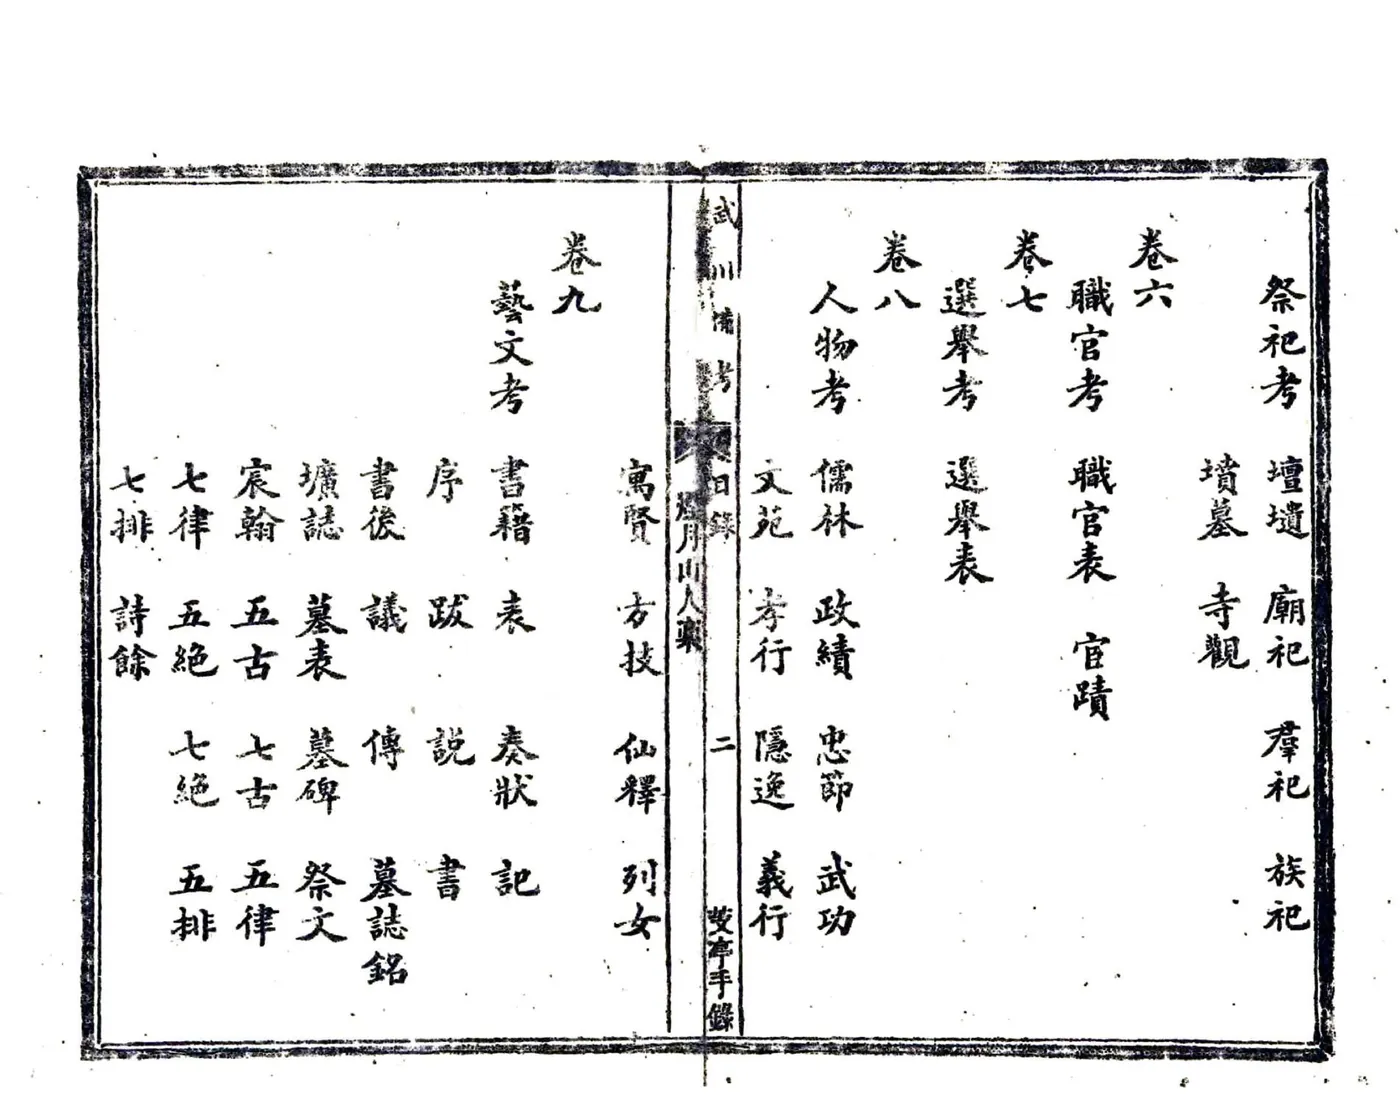 祭祀考 壇壝 廟祀 羣祀 族祀
墳墓 寺觀
卷六
職官考 職官表 宦蹟
卷七
選舉考 選舉表
卷八
人物考 儒林 政績 忠節 武功
文苑 孝行 隱逸 義行
武川備考 目錄 二 雙亭手錄
月山人稾
寓賢 方技 仙釋 列女
卷九
藝文考 書籍 表 奏狀 記
序 跋 說 書
書後 議 傳 墓誌銘
壙誌 墓表 墓碑 祭文
宸翰 五古 七古 五律
七律 五絕 七絕 五排
七排 詩餘